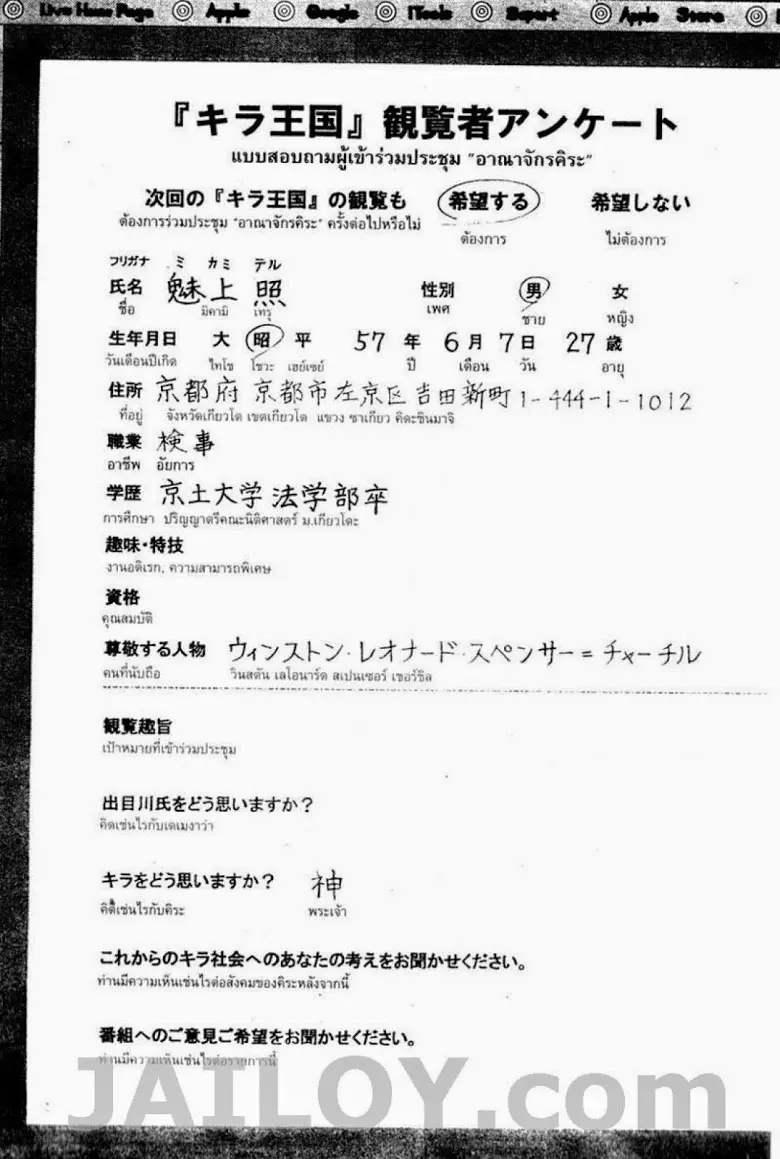 Live Home Page Apple Google iTools Sopart Apple Store
『キラ王国』観覧者アンケート
แบบสอบถามผู้เข้าร่วมประชุม "อาณาจักรคิระ"
次回の『キラ王国』の観覧も 希望する 希望しない
ต้องการร่วมประชุม "อาณาจักรคิระ" ครั้งต่อไปหรือไม่ ต้องการ ไม่ต้องการ
フリガナ ミ カミ テル
氏名 魅上 照 性別 男 女
ชื่อ มิคามิ เทรุ เพศ ชาย หญิง
生年月日 大 昭 平 57 年 6 月 7 日 27 歳
วันเดือนปีเกิด ไทโช โชวะ เฮย์เซย์ ปี เดือน วัน อายุ
住所 京都府 京都市左京区吉田新町1-444-1-1012
ที่อยู่ จังหวัดเกียวโต เขตเกียวโต แขวง ซาเกียว คิตะชินมาจิ
職業 検事
อาชีพ อัยการ
学歴 京土大学 法学部卒
การศึกษา ปริญญาตรีคณะนิติศาสตร์ ม.เกียวโตะ
趣味・特技
งานอดิเรก, ความสามารถพิเศษ
資格
คุณสมบัติ
尊敬する人物 ウィンストン・レオナード・スペンサー=チャーチル
คนที่นับถือ วินสตัน เลโอนาร์ด สเปนเซอร์ เชอร์ชิล
観覧趣旨
เป้าหมายที่เข้าร่วมประชุม
出目川氏をどう思いますか？
คิดเช่นไรกับเดเมงาว่า
キラをどう思いますか？ 神
คิดเช่นไรกับคิระ พระเจ้า
これからのキラ社会へのあなたの考えをお聞かせください。
ท่านมีความเห็นเช่นไรต่อสังคมของคิระหลังจากนี้
番組へのご意見ご希望をお聞かせください。
ท่านมีความเห็นเช่นไรต่อรายการนี้
JAILOY.com